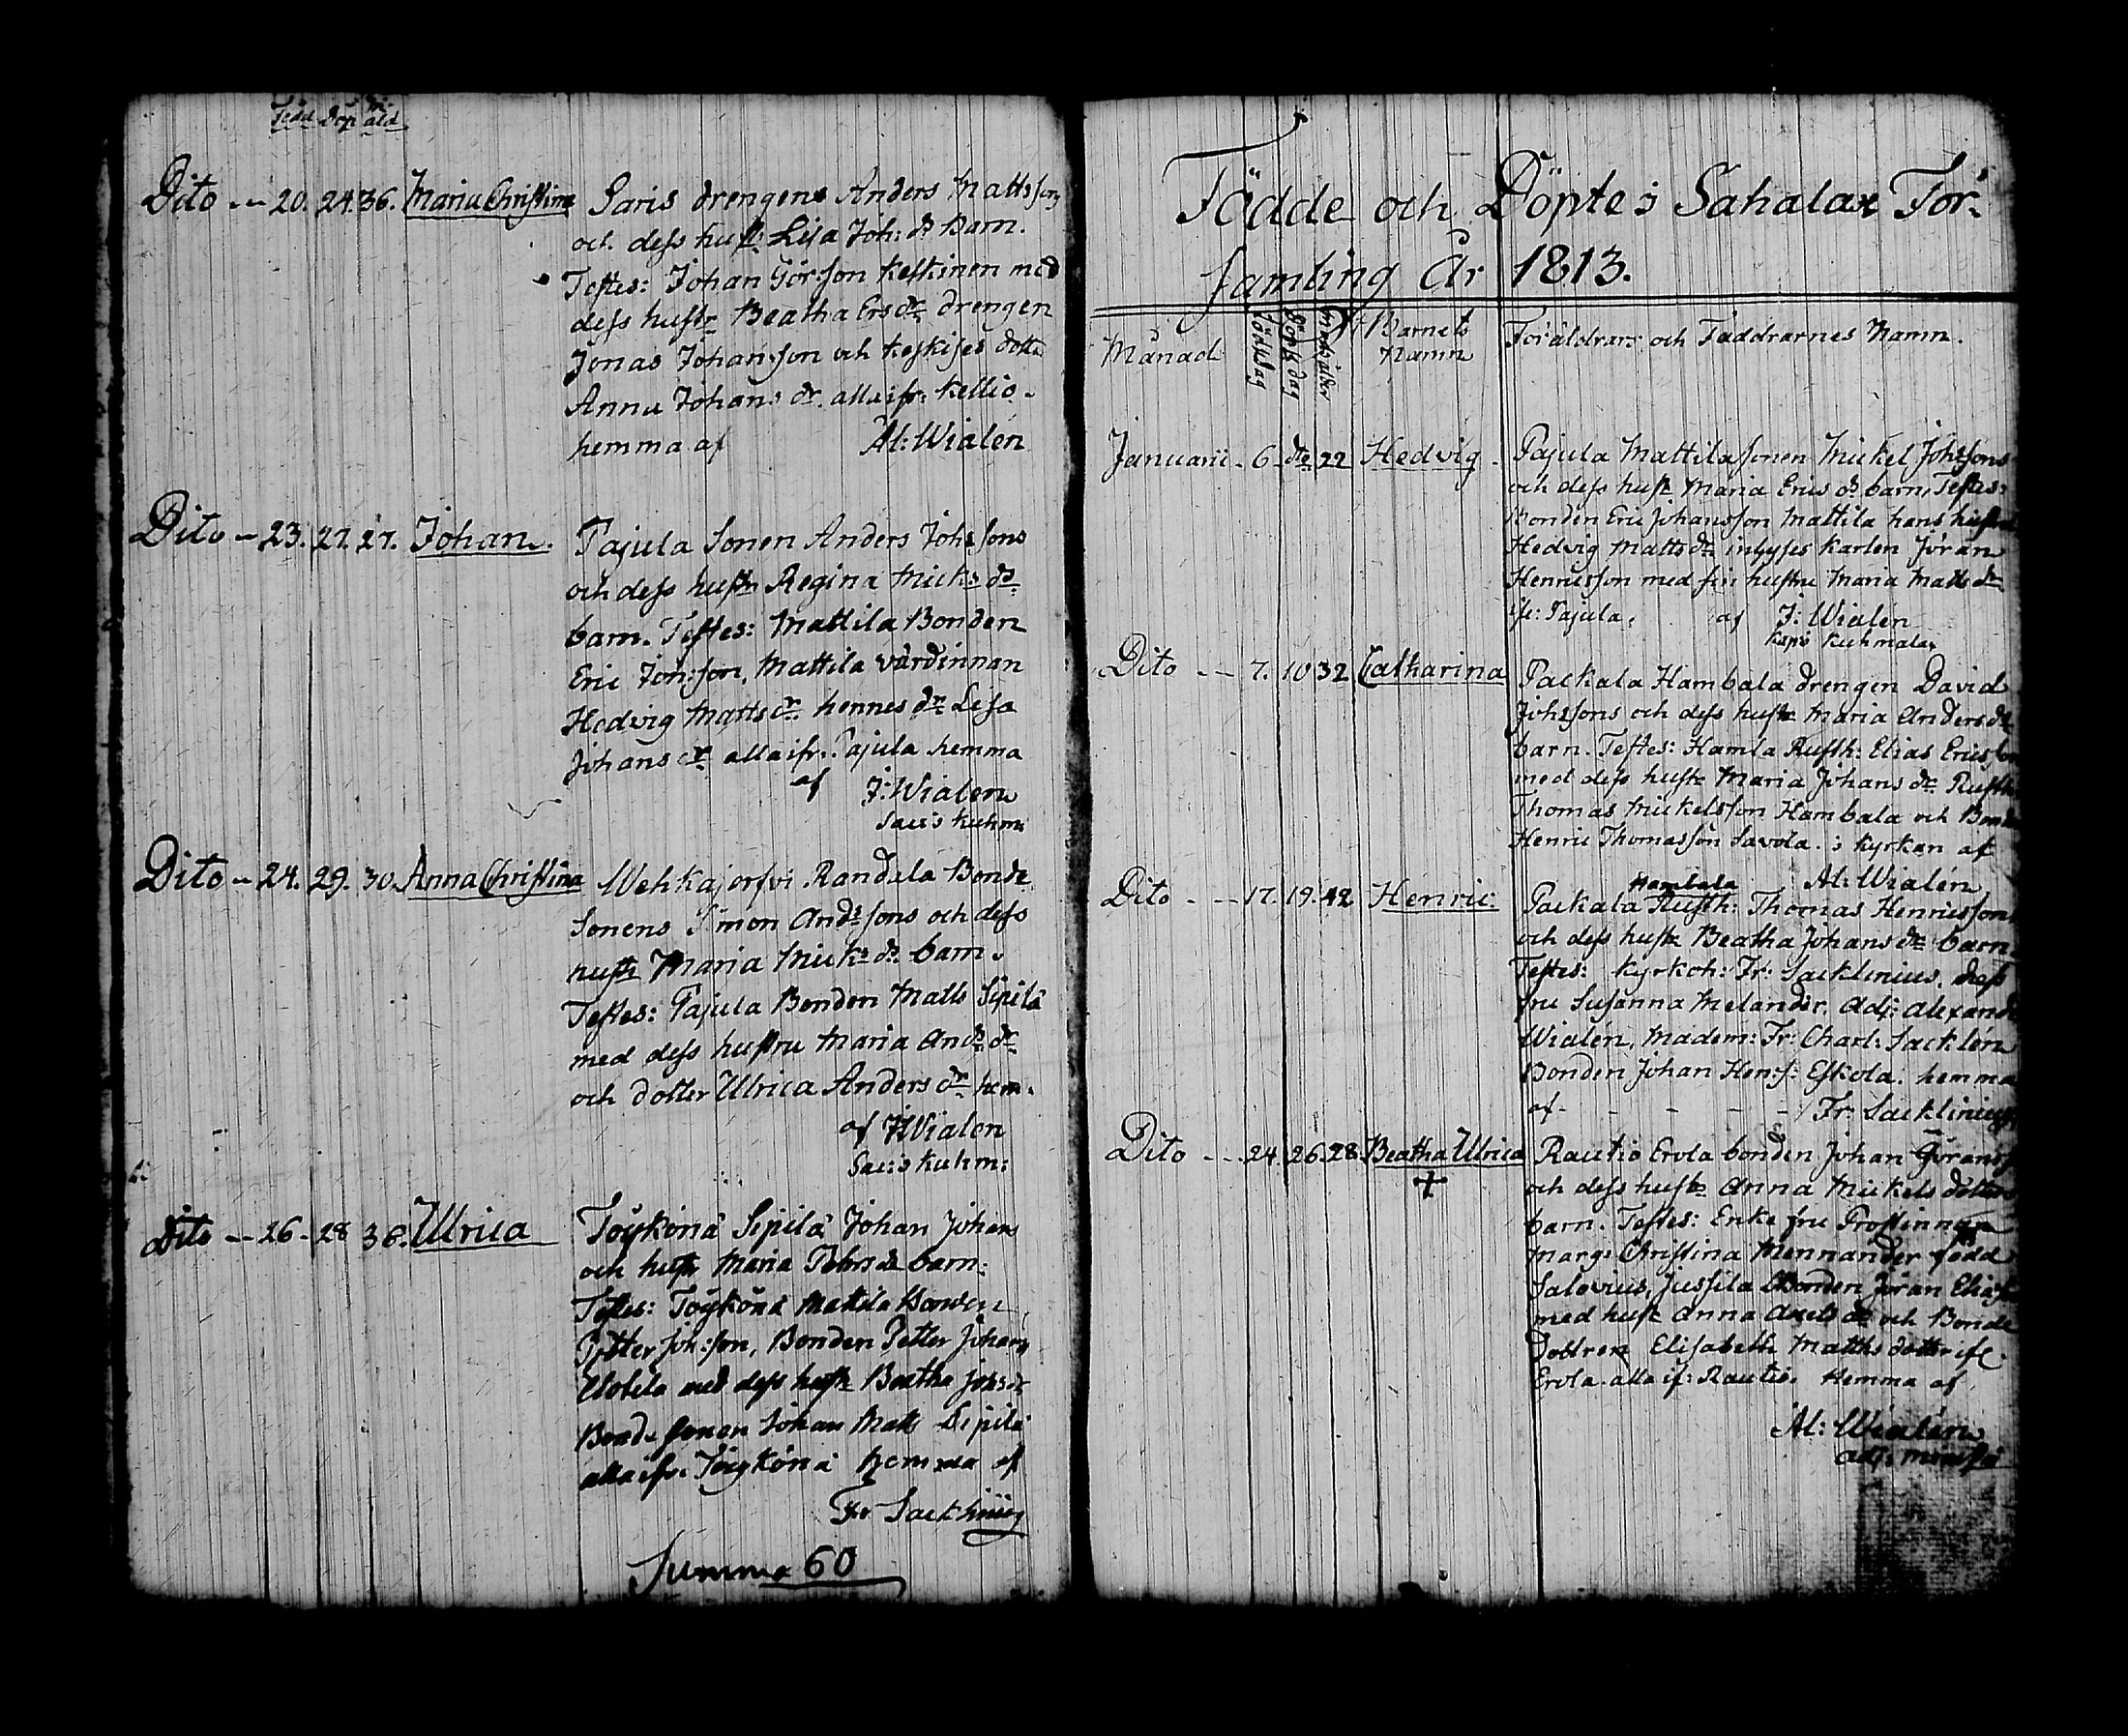 Född Döp: M: åld:
Dito -- 20. 24. 36. Maria Christina Saris drengens Anders Mattssons
och dess hust: Lisa Joh: dr Barn.
Testes: Johan Görsson Keskinen med
dess hustr Beatha Ersdr drengen
Jonas Johansson och Keskises dotter
Anna Johans dr. alla ifr: Kellio-
hemma af Al: Wialén
Dito -- 23. 27. 27. Johan. Pajula Sonen Anders Johs sons
och dess hustr Regina Mick: dr
barn. Testes: Mattila Bonden
Eric Joh:son, Mattila värdinnan
Hedvig Matts dr hennes dr Lisa
Johans dr alla ifr: Pajula hemma
af J: Wialen
Sac: i Kuhm:
Dito -- 24. 29. 30. Anna Christina Wehkajerfvi Randala Bonde
Sonens Simon Ands sons och dess
hustr Maria Micks dr barn.
Testes: Pajula Bonden Matts Sipilä
med dess hustru Maria Ands dr
och dotter Ulrica Anders dr hem:
af J: Wialen
Sac: i Kuhm:
Dito -- 26 - 28 36. Ulrica Töykönä Sipilä Johan Johans
och hustr Maria dr barn:
Testes: Töykönä Mattila Bonden
Petter Joh:son, Bonden Petter Johans
med dess hustr Beatha Johs dr
Bonde sonen Johan Matts Sipilä
alla ifr: Töykönä hemma af
Fr Sacklinius
Summa 60
Födde och Döpte i Sahalax För-
samling År 1813.
Månad Födelsedag Döpelsedag Modrs ålder Barnets Namn Föräldrars och Faddrarnes Namn.
Januarii - 6 - dto 22 Hedvig - Pajula Mattila sonen Mickel Johssons
och dess hustr Maria Erics dr barn, Testes:
Bonden Eric Johansson Mattila hans hustru
Hedvig Matts dr inhyses Karlen Jöran
Henricsson med sin hustru Maria Matts dr
ifr: Pajula. af J: Wialen
Kap: i Kuhmalax
Dito -- 7. 10 32 Catharina Packala Hambala drengen David
Johssons och dess hustr Maria Anders dr
barn. Testes: Hamla Rusth: Elias Ericsson
med dess hustr Maria Johans dr Rusth:
Thomas Mickelsson Hambala och Bonden
Henric Thomasson Savola. i Kyrkan af
Al: Wialén
Dito -- 17. 19. 42 Henric: Packala Hambala Rusth: Thomas Henricssons
och dess hustr Beatha Johans dr barn.
Testes: Kyrkoh: Fr: Sacklinius, dess
fru Susanna Melander. Adj: Alexander
Wialén, Madem: Fr: Charl: Sacklén
Bonden Johan Hen:s: Eskola. hemma
af - - - - Fr: Sacklinius
Dito -- 24. 26. 28. Beatha Ulrica Rautio Ervla bonden Johan Görans
+
och dess hustr Anna Mickels dotters
barn. Testes: Enke fru Prostinnan
Marg: Christina Mennander född
Salovius, Jussila Bonden Jöran Elias
med hustr Anna Axels dr och Bonde
Dottren Elisabeth Matths dotter ifr:
Ervla. alla if: Rautio. Hemma af
Al: Wialén
adj: minist: